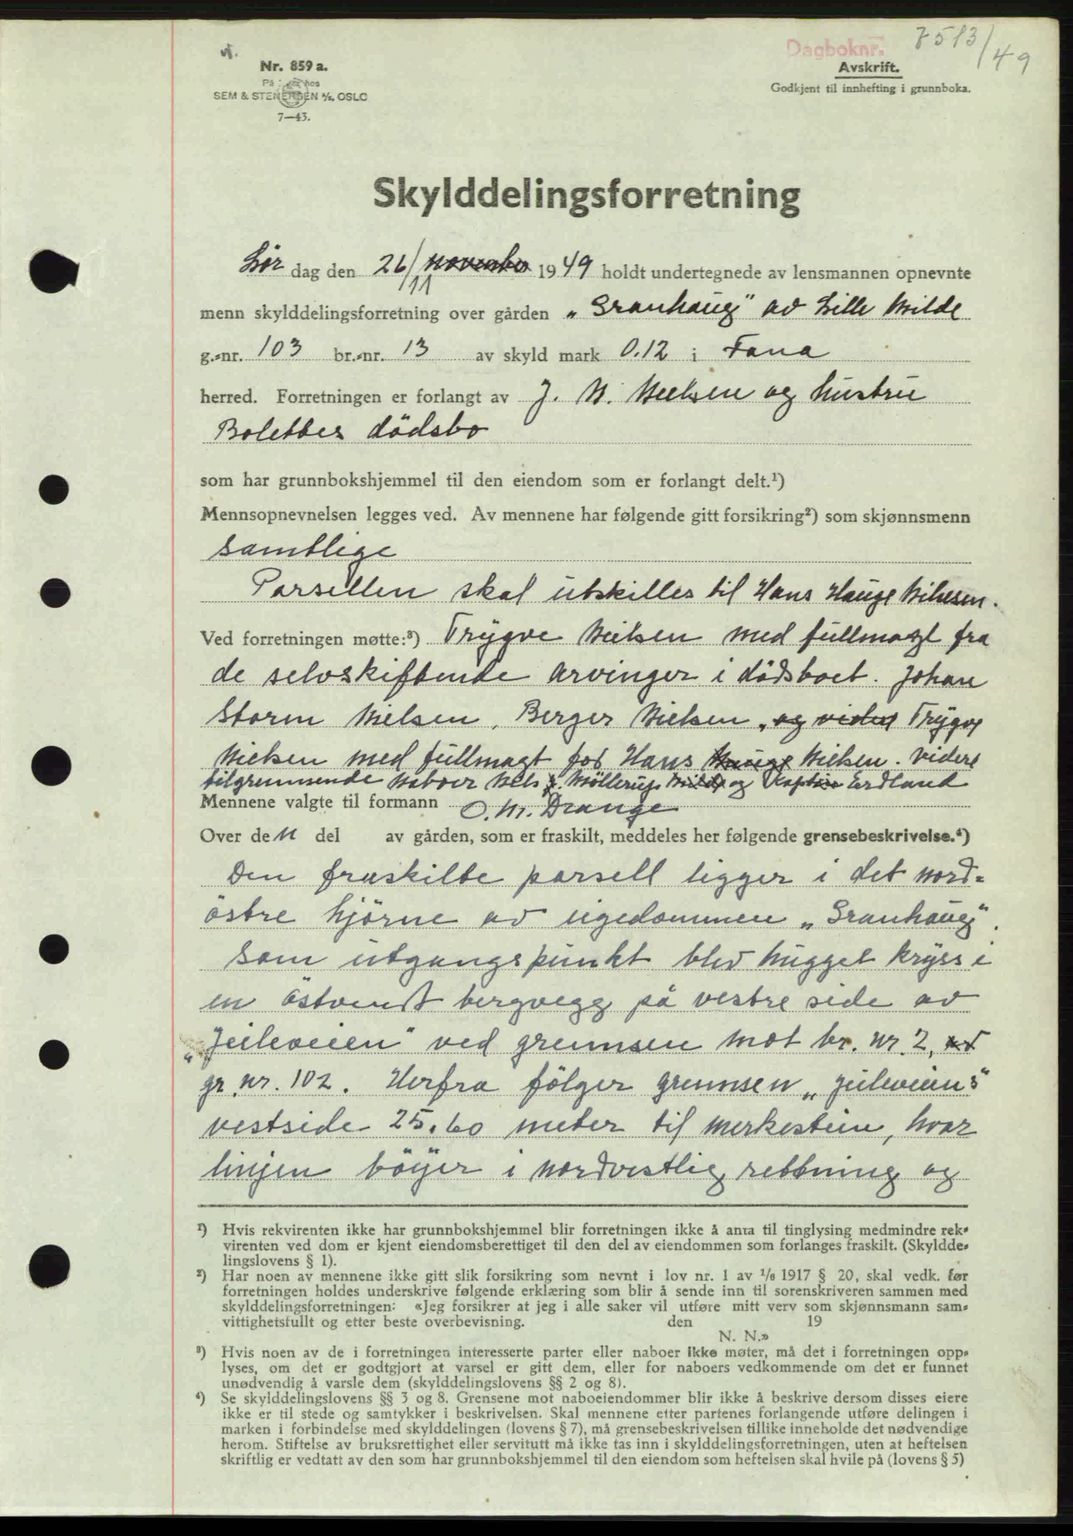 Dagboknr. 7513/49
Nr. 859 a.
Avskrift.
På lager hos
Godkjent til innhefting i grunnboka.
SEM & STENERSEN A/S, OSLO
7—43.
Skylddelingsforretning
Lör dag den 26/11 november 1949 holdt undertegnede av lensmannen opnevnte
menn skylddelingsforretning over gården „Granhaug" av Lille Milde
g.-nr. 103 br.-nr. 13 av skyld mark 0.12 i Fana
herred. Forretningen er forlangt av J. N. Nielsen og hustru
Bolettes dödsbo
som har grunnbokshjemmel til den eiendom som er forlangt delt.¹)
Mennsopnevnelsen legges ved. Av mennene har følgende gitt forsikring²) som skjønnsmenn
samtlige
Parsellen skal utskilles til Hans Hauge Nilsen.
Ved forretningen møtte:³) Trygve Nielsen med fullmagt fra
de selvskiftende arvinger i dödsboet. Johan
Storm Nielsen, Berger Nielsen, og videre Trygve
Nielsen med fullmagt for Hans Hauge Nielsen. videre
tilgrensende naboer Nels Möllerup Milde og Erdland
Mennene valgte til formann O. M. Drange
Over den del av gården, som er fraskilt, meddeles her følgende grensebeskrivelse.⁴)
Den fraskilte parsell ligger i det nord-
östre hjörne av eigedommen „Granhaug".
Som utgangspunkt blev hugget kryss i
en östvendt bergvegg på vestre side av
„Jeileveien" ved grennsen mot br. nr. 2, av
gr. nr. 102. Herfra fölger grennsen „Jeileveien's"
vestside 25.60 meter til merkestein, hvor
linjen böyer i nordvestlig rettning og
¹) Hvis rekvirenten ikke har grunnbokshjemmel blir forretningen ikke å anta til tinglysing medmindre rek-
virenten ved dom er kjent eiendomsberettiget til den del av eiendommen som forlanges fraskilt. (Skyldde-
lingslovens § 1).
²) Har noen av mennene ikke gitt slik forsikring som nevnt i lov nr. 1 av ¹/₈ 1917 § 20, skal vedk. før
forretningen holdes underskrive følgende erklæring som blir å sende inn til sorenskriveren sammen med
skylddelingsforretningen: «Jeg forsikrer at jeg i alle saker vil utføre mitt verv som skjønnsmann sam-
vittighetsfullt og etter beste overbevisning. den 19
N. N.»
³) Hvis noen av de i forretningen interesserte parter eller naboer ikke møter, må det i forretningen opp-
lyses, om det er godtgjort at varsel er gitt dem, eller for naboers vedkommende om det er funnet
unødvendig å varsle dem (skylddelingslovens §§ 2 og 8).
⁴) Se skylddelingslovens §§ 3 og 8. Grensene mot naboeiendommer blir ikke å beskrive dersom disses eiere
ikke er til stede og samtykker i beskrivelsen. Skal mennene etter partenes forlangende utføre delingen i
marken i forbindelse med skylddelingen (lovens § 7), må grensebeskrivelsen tillike inneholde det nødvendige
herom. Stiftelse av bruksrettighet eller servitutt må ikke tas inn i skylddelingsforretningen, uten at heftelsen
skriftlig er vedtatt av den som har grunnbokshjemmel til den eiendom som heftelsen skal hvile på (lovens § 5)